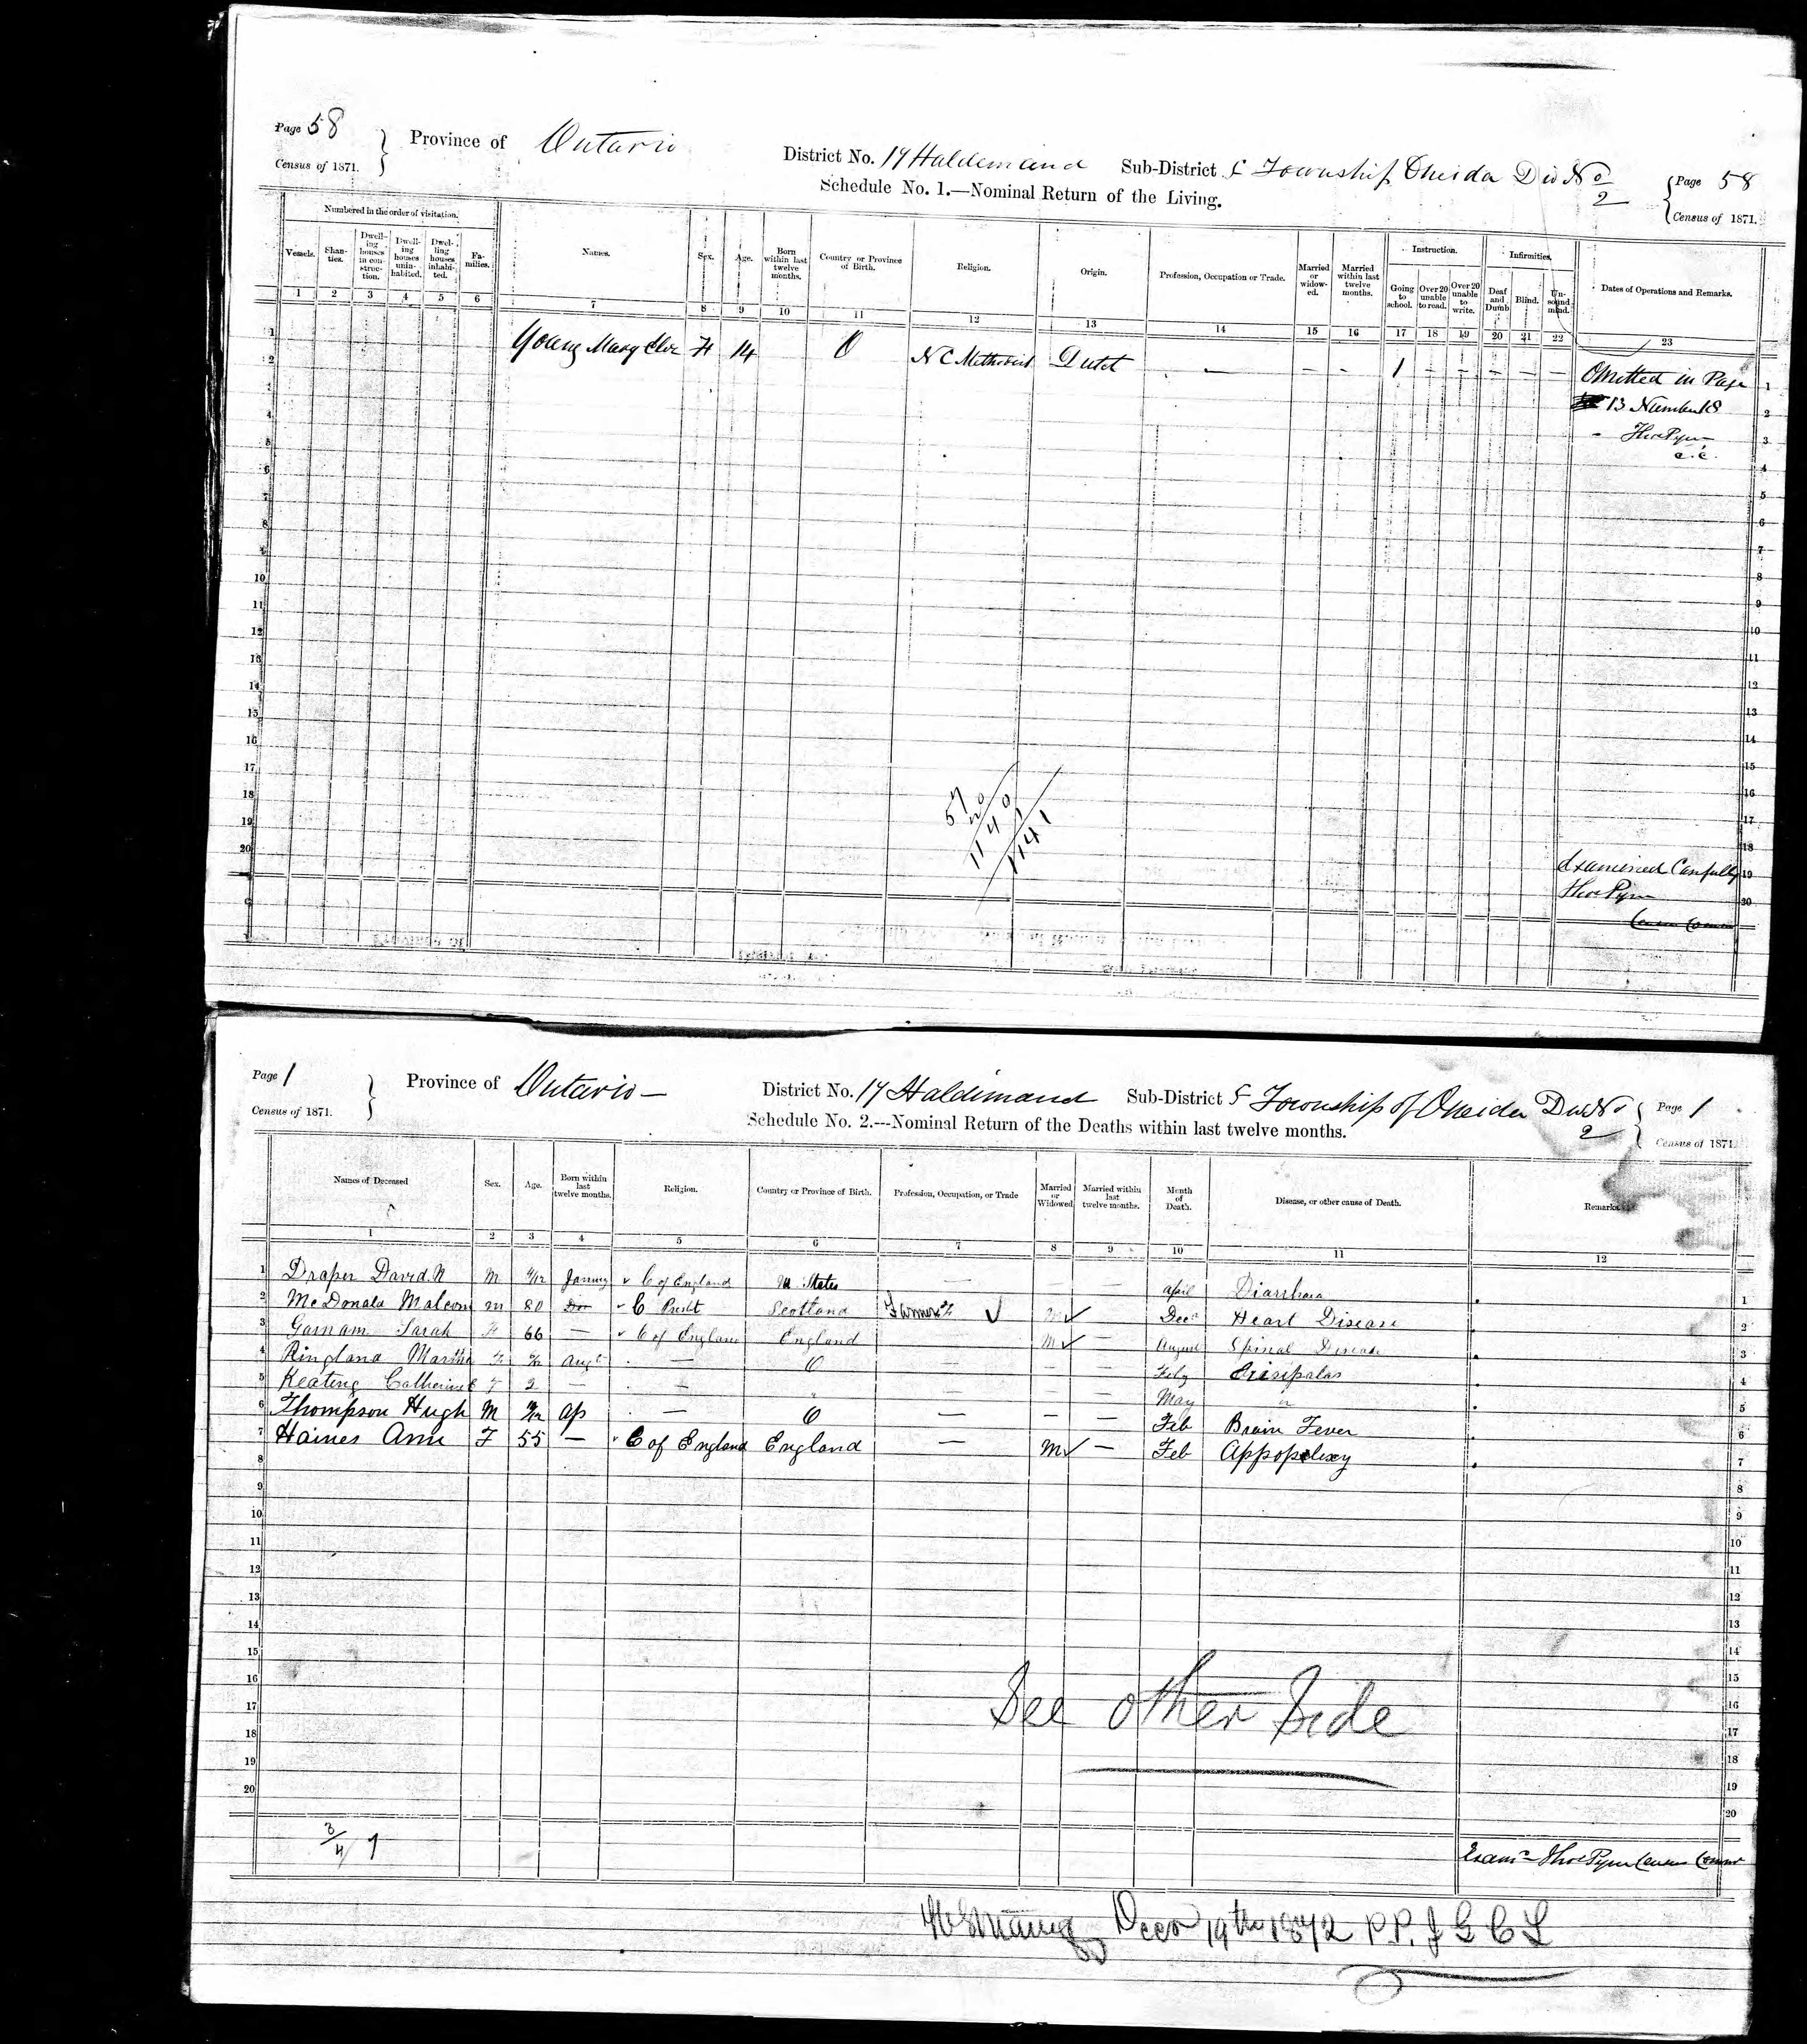 Page 58 } Province of Ontario District No. 17 Haldimand Sub-District f Township Oneida Div No 2 { Page 58
Census of 1871. Schedule No. 1.—Nominal Return of the Living. Census of 1871.
Numbered in the order of visitation. Instruction. Infirmities.
Vessels. Shan-ties. Dwell-ing houses in con-struc-tion. Dwell-ing houses unin-habited. Dwel-ling houses inhabi-ted. Fa-milies. Names. Sex. Age. Born within last twelve months. Country or Province of Birth. Religion. Origin. Profession, Occupation or Trade. Married or widow-ed. Married within last twelve months. Going to school. Over 20 unable to read. Over 20 unable to write. Deaf and Dumb Blind. Un-sound mind. Dates of Operations and Remarks.
1 2 3 4 5 6 7 8 9 10 11 12 13 14 15 16 17 18 19 20 21 22 23
1 Young Mary F 14 O N C Methodist Dutch — - - 1 - - - - — Omitted in Page 1
2 13 Number 18 2
3 Thos Pym 3
c.c.
4 4
5 5
6 6
7 7
8 8
9 9
10 10
11 11
12 12
13 13
14 14
15 15
16 16
17 17
18 18
19 Examined Carefully 19
20 Thos Pym 20
57
20
1140
1
1141
Page 1 } Province of Ontario — District No. 17 Haldimand Sub-District f Township of Oneida Div No 2 { Page 1
Census of 1871. Schedule No. 2.---Nominal Return of the Deaths within last twelve months. Census of 1871.
Names of Deceased Sex. Age. Born within last twelve months. Religion. Country or Province of Birth. Profession, Occupation, or Trade Married or Widowed Married within last twelve months. Month of Death. Disease, or other cause of Death. Remarks.
1 2 3 4 5 6 7 8 9 10 11 12
1 Draper David N M 4/12 C of England U States — — — April Diarrhoea 1
2 McDonald Malcom M 80 C Presbt Scotland Farmer ✓ ✓ Decr Heart Disease 2
3 Sarah F 66 — C of England England M✓ — August Spinal Disease 3
4 Ringland Martha F Augt — O — — — Feby Erisipalas 4
5 Keating Catherine F 2 — — " — — — May " 5
6 Thompson Hugh M Ap — O — — — Feb Brain Fever 6
7 Haines Ann F 55 — C of England England — M✓ — Feb Appoplexy 7
8 8
9 9
10 10
11 11
12 12
13 13
14 14
15 15
16 16
17 17
18 18
19 19
20 20
See other Side
3/4/ 7
Thos Pym Census Commr
Decr 19th 1872 P.P. J G C L